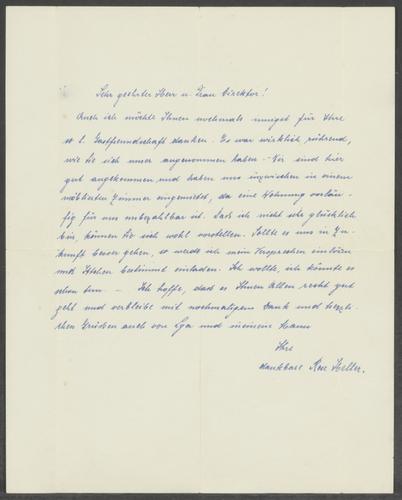 Sehr geehrter Herr u. Frau Direktor!
Auch ich möchte Ihnen nochmals innigst für Ihre
so l. Gastfreundschaft danken. Es war wirklich rührend,
wie Sie sich unser angenommen haben. Wir sind hier
gut angekommen und haben uns inzwischen in einem
möblierten Zimmer eingemietet, da eine Wohnung vorläu-
fig für uns unbezahlbar ist. Dass ich nicht sehr glücklich
bin, können Sie sich wohl vorstellen. Sollte es uns in Zu-
kunft besser gehen, so werde ich mein Versprechen einlösen
und Sie bestimmt einladen. Ich wollte, ich könnte es
schon tun. – Ich hoffe, dass es Ihnen Allen recht gut
geht und verbleibe mit nochmaligem Dank und herzli-
chen Grüssen auch von und meinem Mann
Ihre
dankbare Heller.